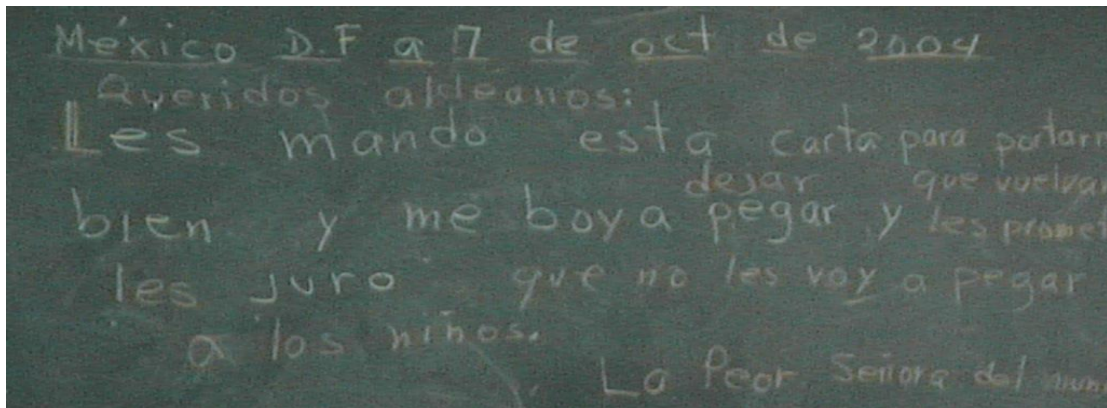 México D.F a 7 de oct de 2004
Queridos aldeanos:
Les mando esta carta para portarm
dejar que vuelvan
bien y me boy a pegar y les promet
les juro que no les voy a pegar
a los niños.
La Peor Señora del mun